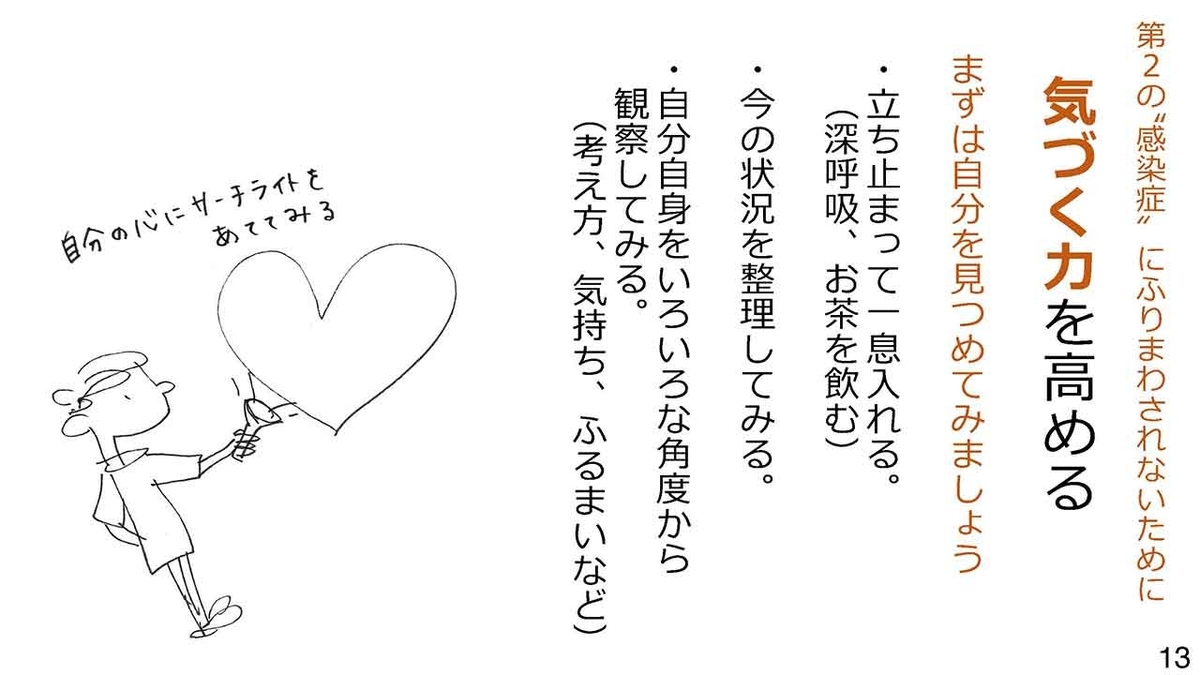 第2の“感染症”にふりまわされないために
気づく力を高める
まずは自分を見つめてみましょう
・立ち止まって一息入れる。
(深呼吸、お茶を飲む)
・今の状況を整理してみる。
・自分自身をいろいろな角度から
観察してみる。
(考え方、気持ち、ふるまいなど)
自分の心にサーチライトを
あててみる
13